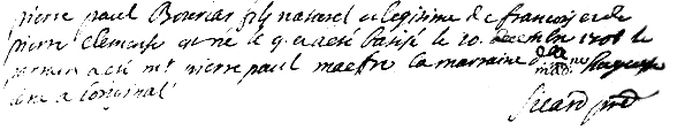 pierre paul Bourias fils naturel et legitime de francois et de
pierre clemense est né le 9 et a esté batisé le 10 decembre 1708 le
parrain a esté mr pierre paul maestre la marraine
a l'original
Sicard